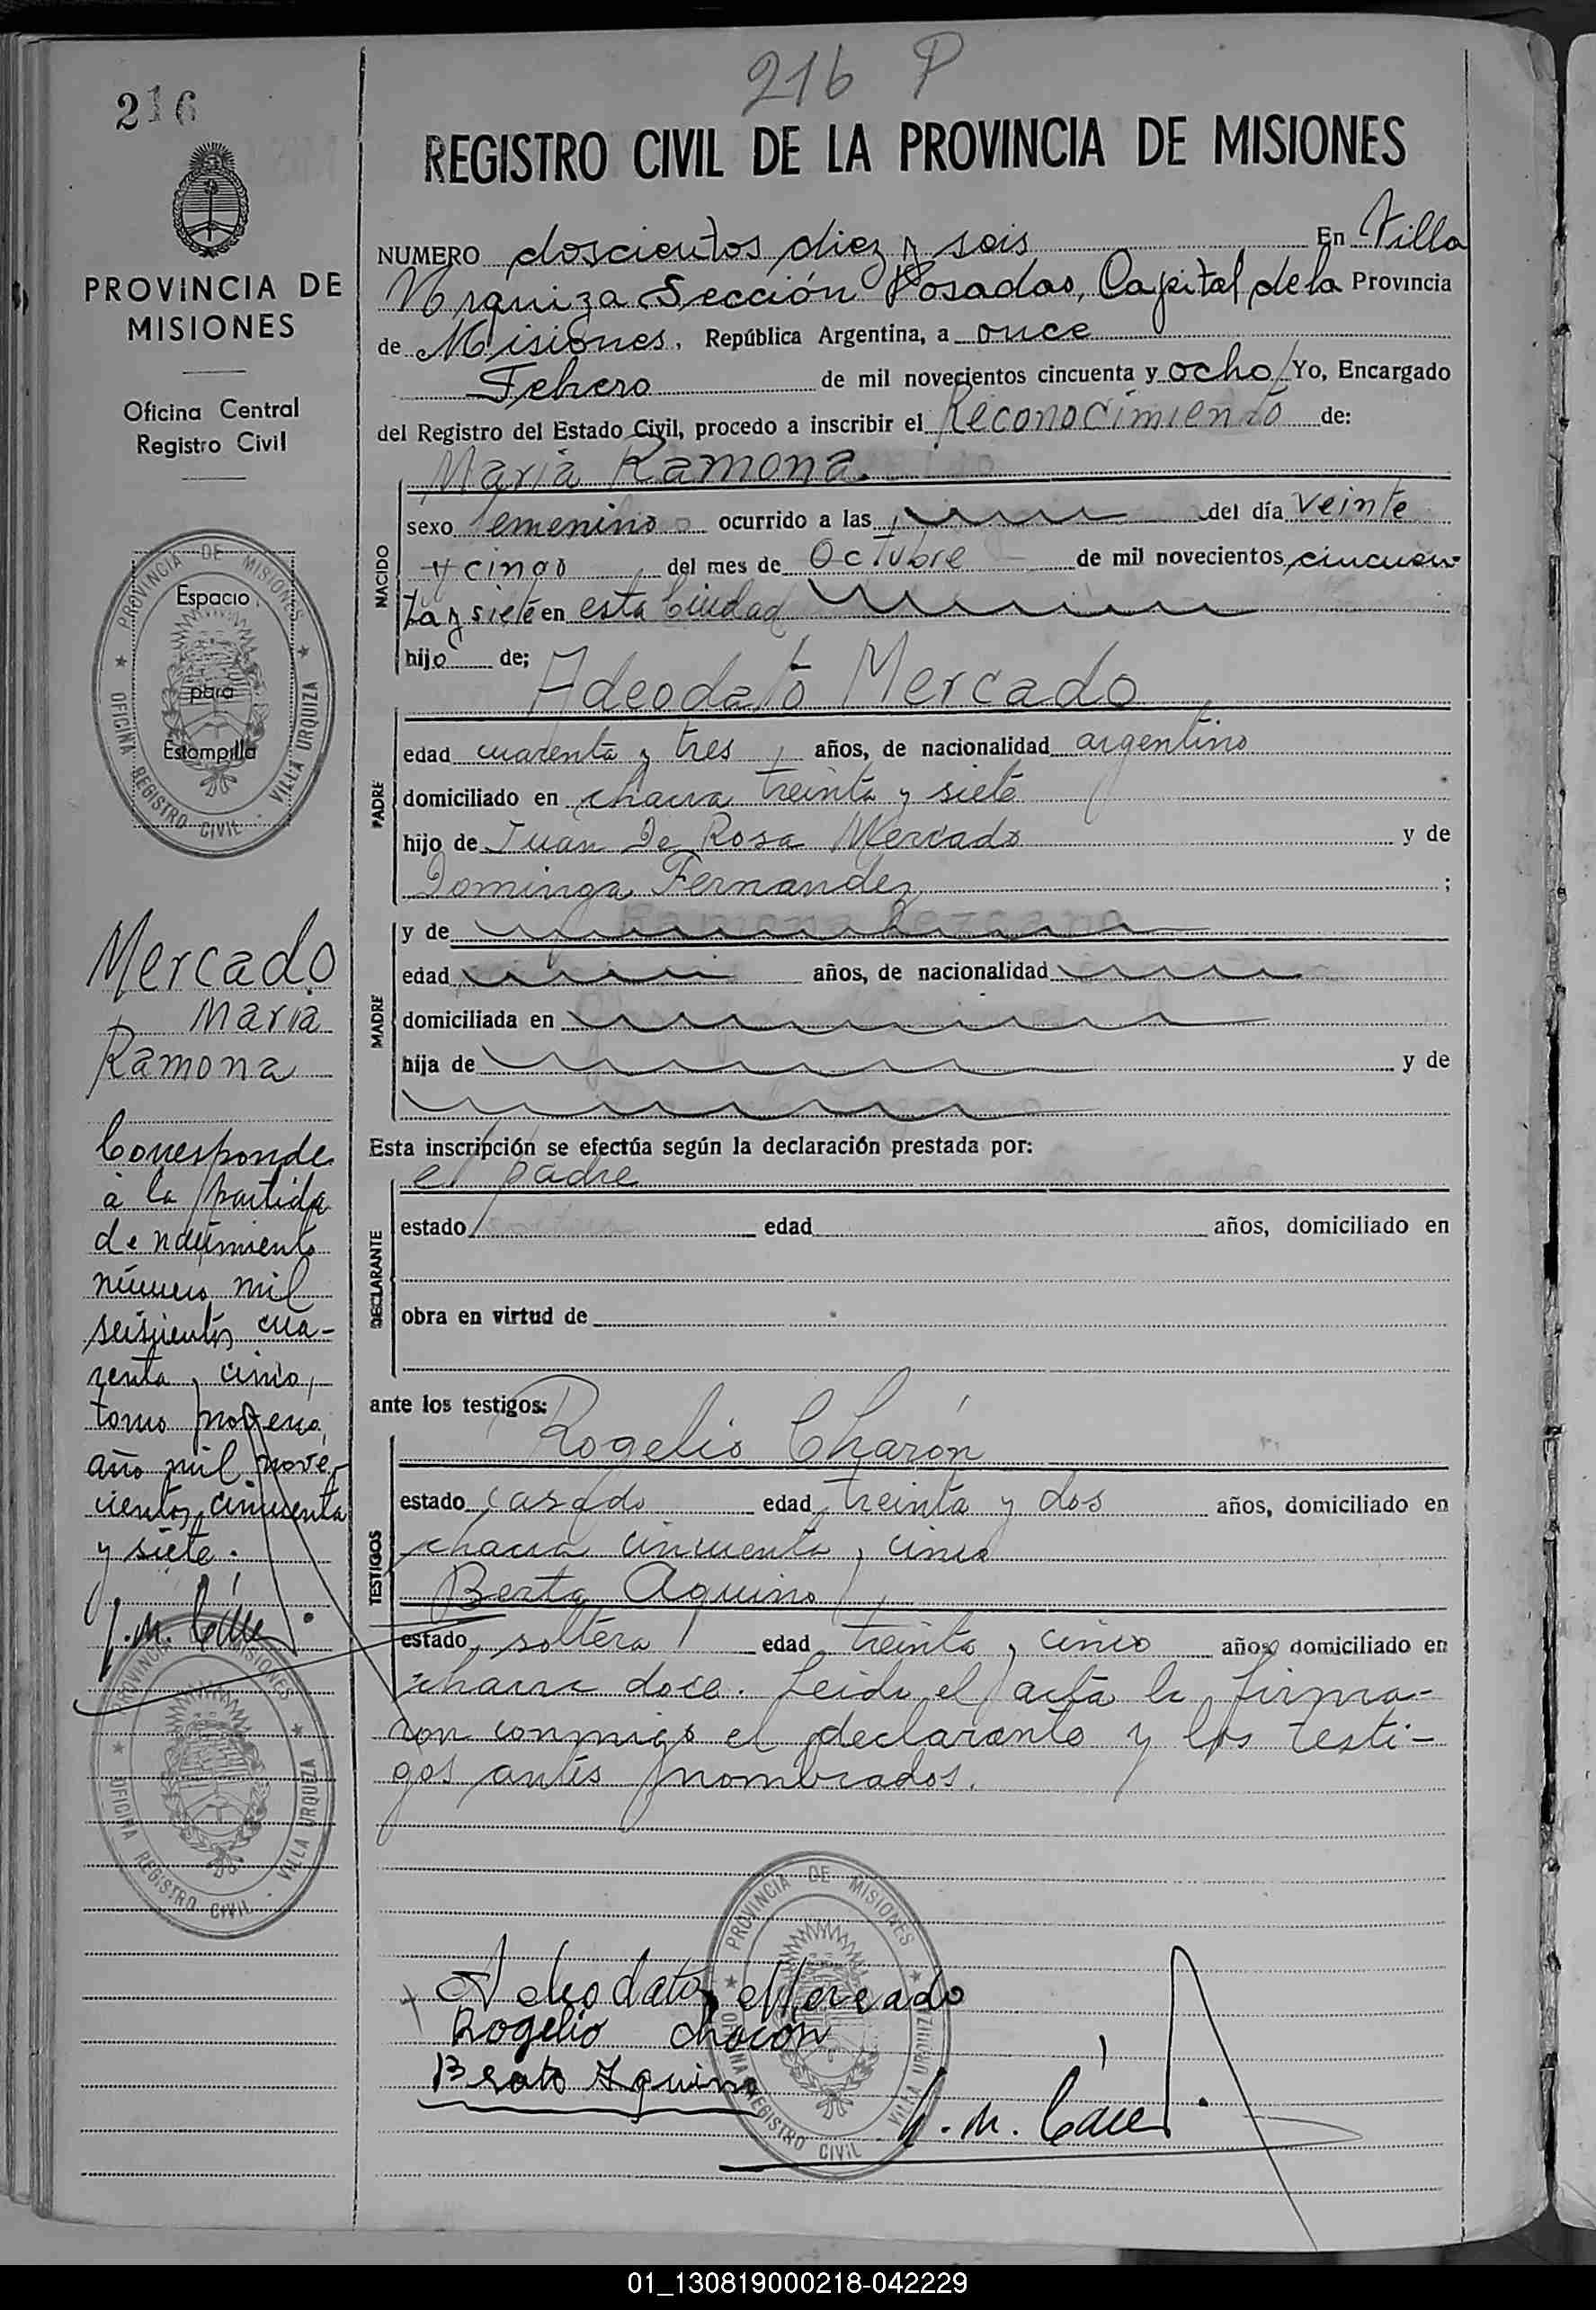 216 P
216
REGISTRO CIVIL DE LA PROVINCIA DE MISIONES
PROVINCIA DE
MISIONES
Oficina Central
Registro Civil
NUMERO doscientos diez y seis En Villa
Urquiza Sección Posadas, Capital de la Provincia
de Misiones, República Argentina, a once
Febrero de mil novecientos cincuenta y ocho Yo, Encargado
del Registro del Estado Civil, procedo a inscribir el Reconocimiento de:
Maria Ramona.
NACIDO
sexo femenino ocurrido a las del día veinte
y cinco del mes de Octubre de mil novecientos cincuen
ta y siete en esta Ciudad
hijo de;
Adeodato Mercado
PADRE
edad cuarenta y tres años, de nacionalidad argentino
domiciliado en chacra treinta y siete
hijo de Juan De Rosa Mercado y de
Dominga Fernandez ;
MADRE
y de
edad años, de nacionalidad
domiciliada en
hija de y de
Esta inscripción se efectúa según la declaración prestada por:
el padre
DECLARANTE
estado edad años, domiciliado en
obra en virtud de
ante los testigos:
Rogelio Charón
TESTIGOS
estado casado edad treinta y dos años, domiciliado en
chacra cincuenta y cinco
Berta Aquino
estado soltera edad treinta y cinco años domiciliado en
chacra doce. Leida el acta la firma-
ron conmigo el declarante y los testi-
gos antes nombrados.
Adeodato Mercado
Rogelio chacón
Berta Aquino
PROVINCIA DE MISIONES
OFICINA REGISTRO CIVIL - VILLA URQUIZA
Espacio
para
Estampilla
Mercado
Maria
Ramona
Corresponde
a la partida
de nacimiento
número mil
seiscientos cua-
renta y cinco,
tomo noveno,
año mil nove-
cientos cincuenta
y siete.
PROVINCIA DE MISIONES
OFICINA REGISTRO CIVIL - VILLA URQUIZA
PROVINCIA DE MISIONES
OFICINA REGISTRO CIVIL VILLA URQUIZA
01_130819000218-042229